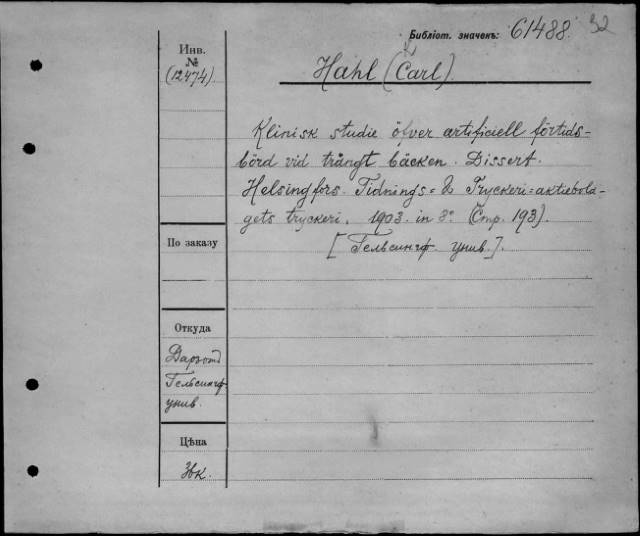 Библіот. значекъ: 61488. 32
Инв.
№
(12474).
Hahl (Carl).
Klinisk studie öfver artificiell förtids-
börd vid trångt bäcken. Dissert.
Helsingfors. Tidnings= & Tryckeri=aktiebola-
gets tryckeri. 1903. in 8°. (Стр. 193).
[Гельсингф. унив.].
По заказу
Откуда
Гельсингф.
унив.
Цѣна